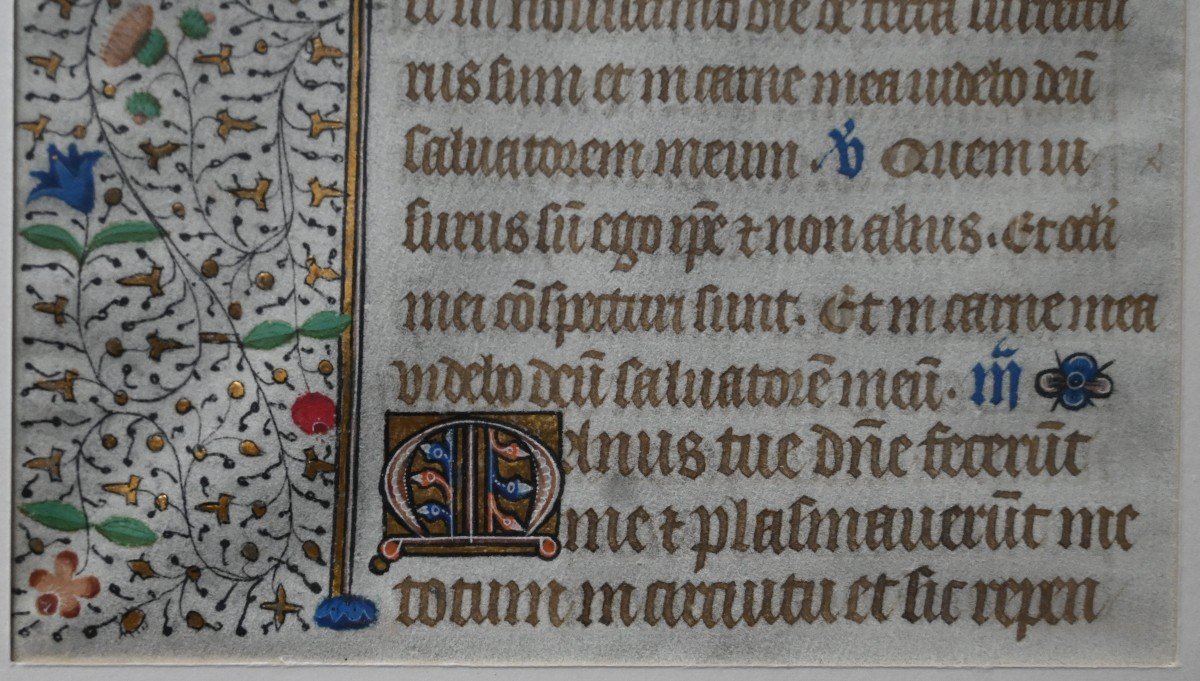 ū in nouiſſimo die de terra ſurrectu
rus ſum et in carne mea uidebo deū
ſaluatorem meum. V̄ Quem ui
ſurus ſū ego ip̄e ⁊ non alius. Et oc̄li
mei cōſpecturi ſunt. Et in carne mea
videbo deū ſaluatorē meū. iij̄
Manus tue dn̄e fecerūt
me ⁊ plaſmauerūt me
totum in circuitu et ſic repen